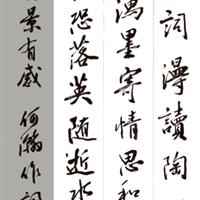 詞漫讀陶
墨寄情思和
恐落英随逝水
景有感 何瀚作詞